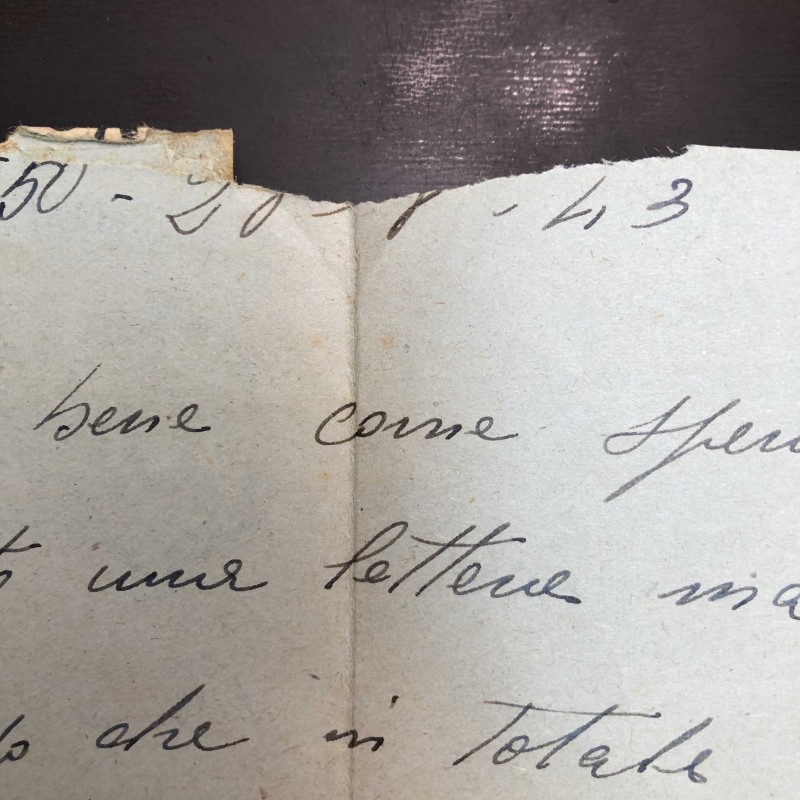 50 - 20 - 8 - 43
bene come sper
una lettera ma
che in Totale